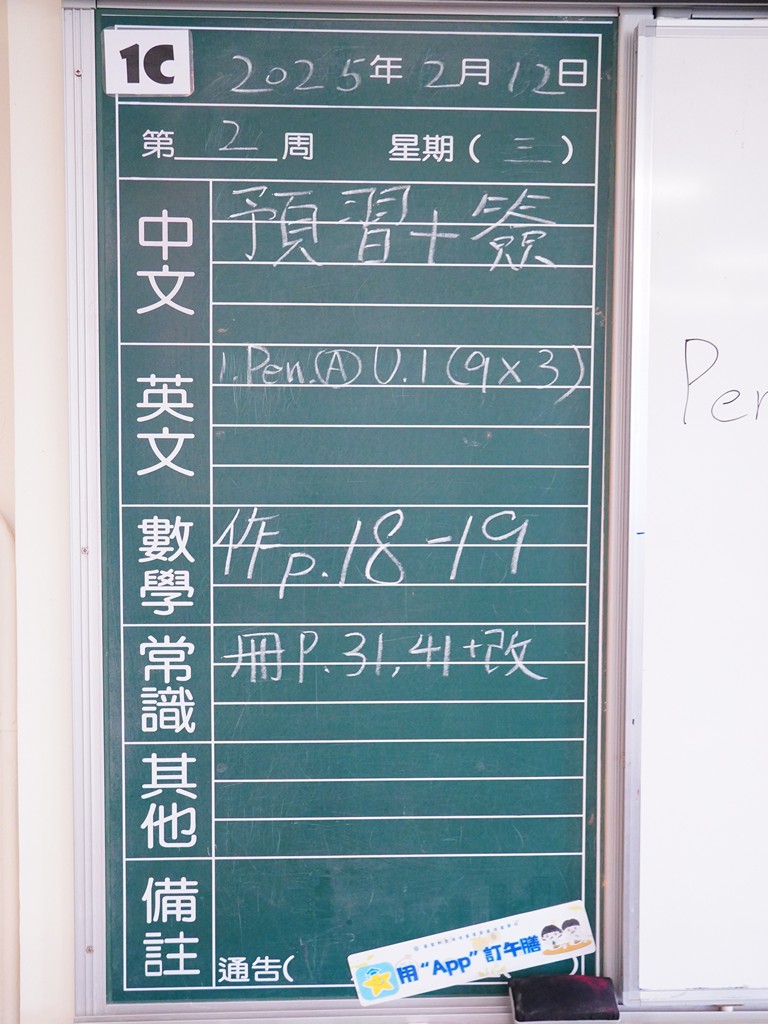 1C
2025年2月12日
第2周 星期(三)
中文
預習+簽
英文
1.Pen.Ⓐ U.1 (9x3)
數學
作p.18-19
常識
冊P.31,41+改
其他
備註
通告( )
用“App”訂午膳
Pen